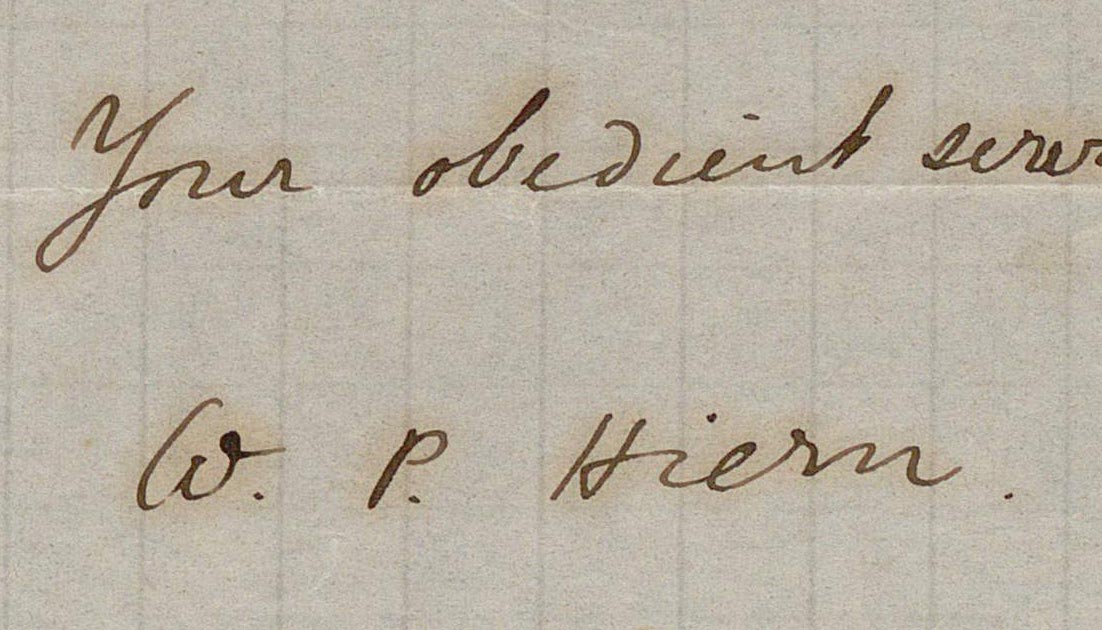 Your obedient serv
W. P. Hiern.